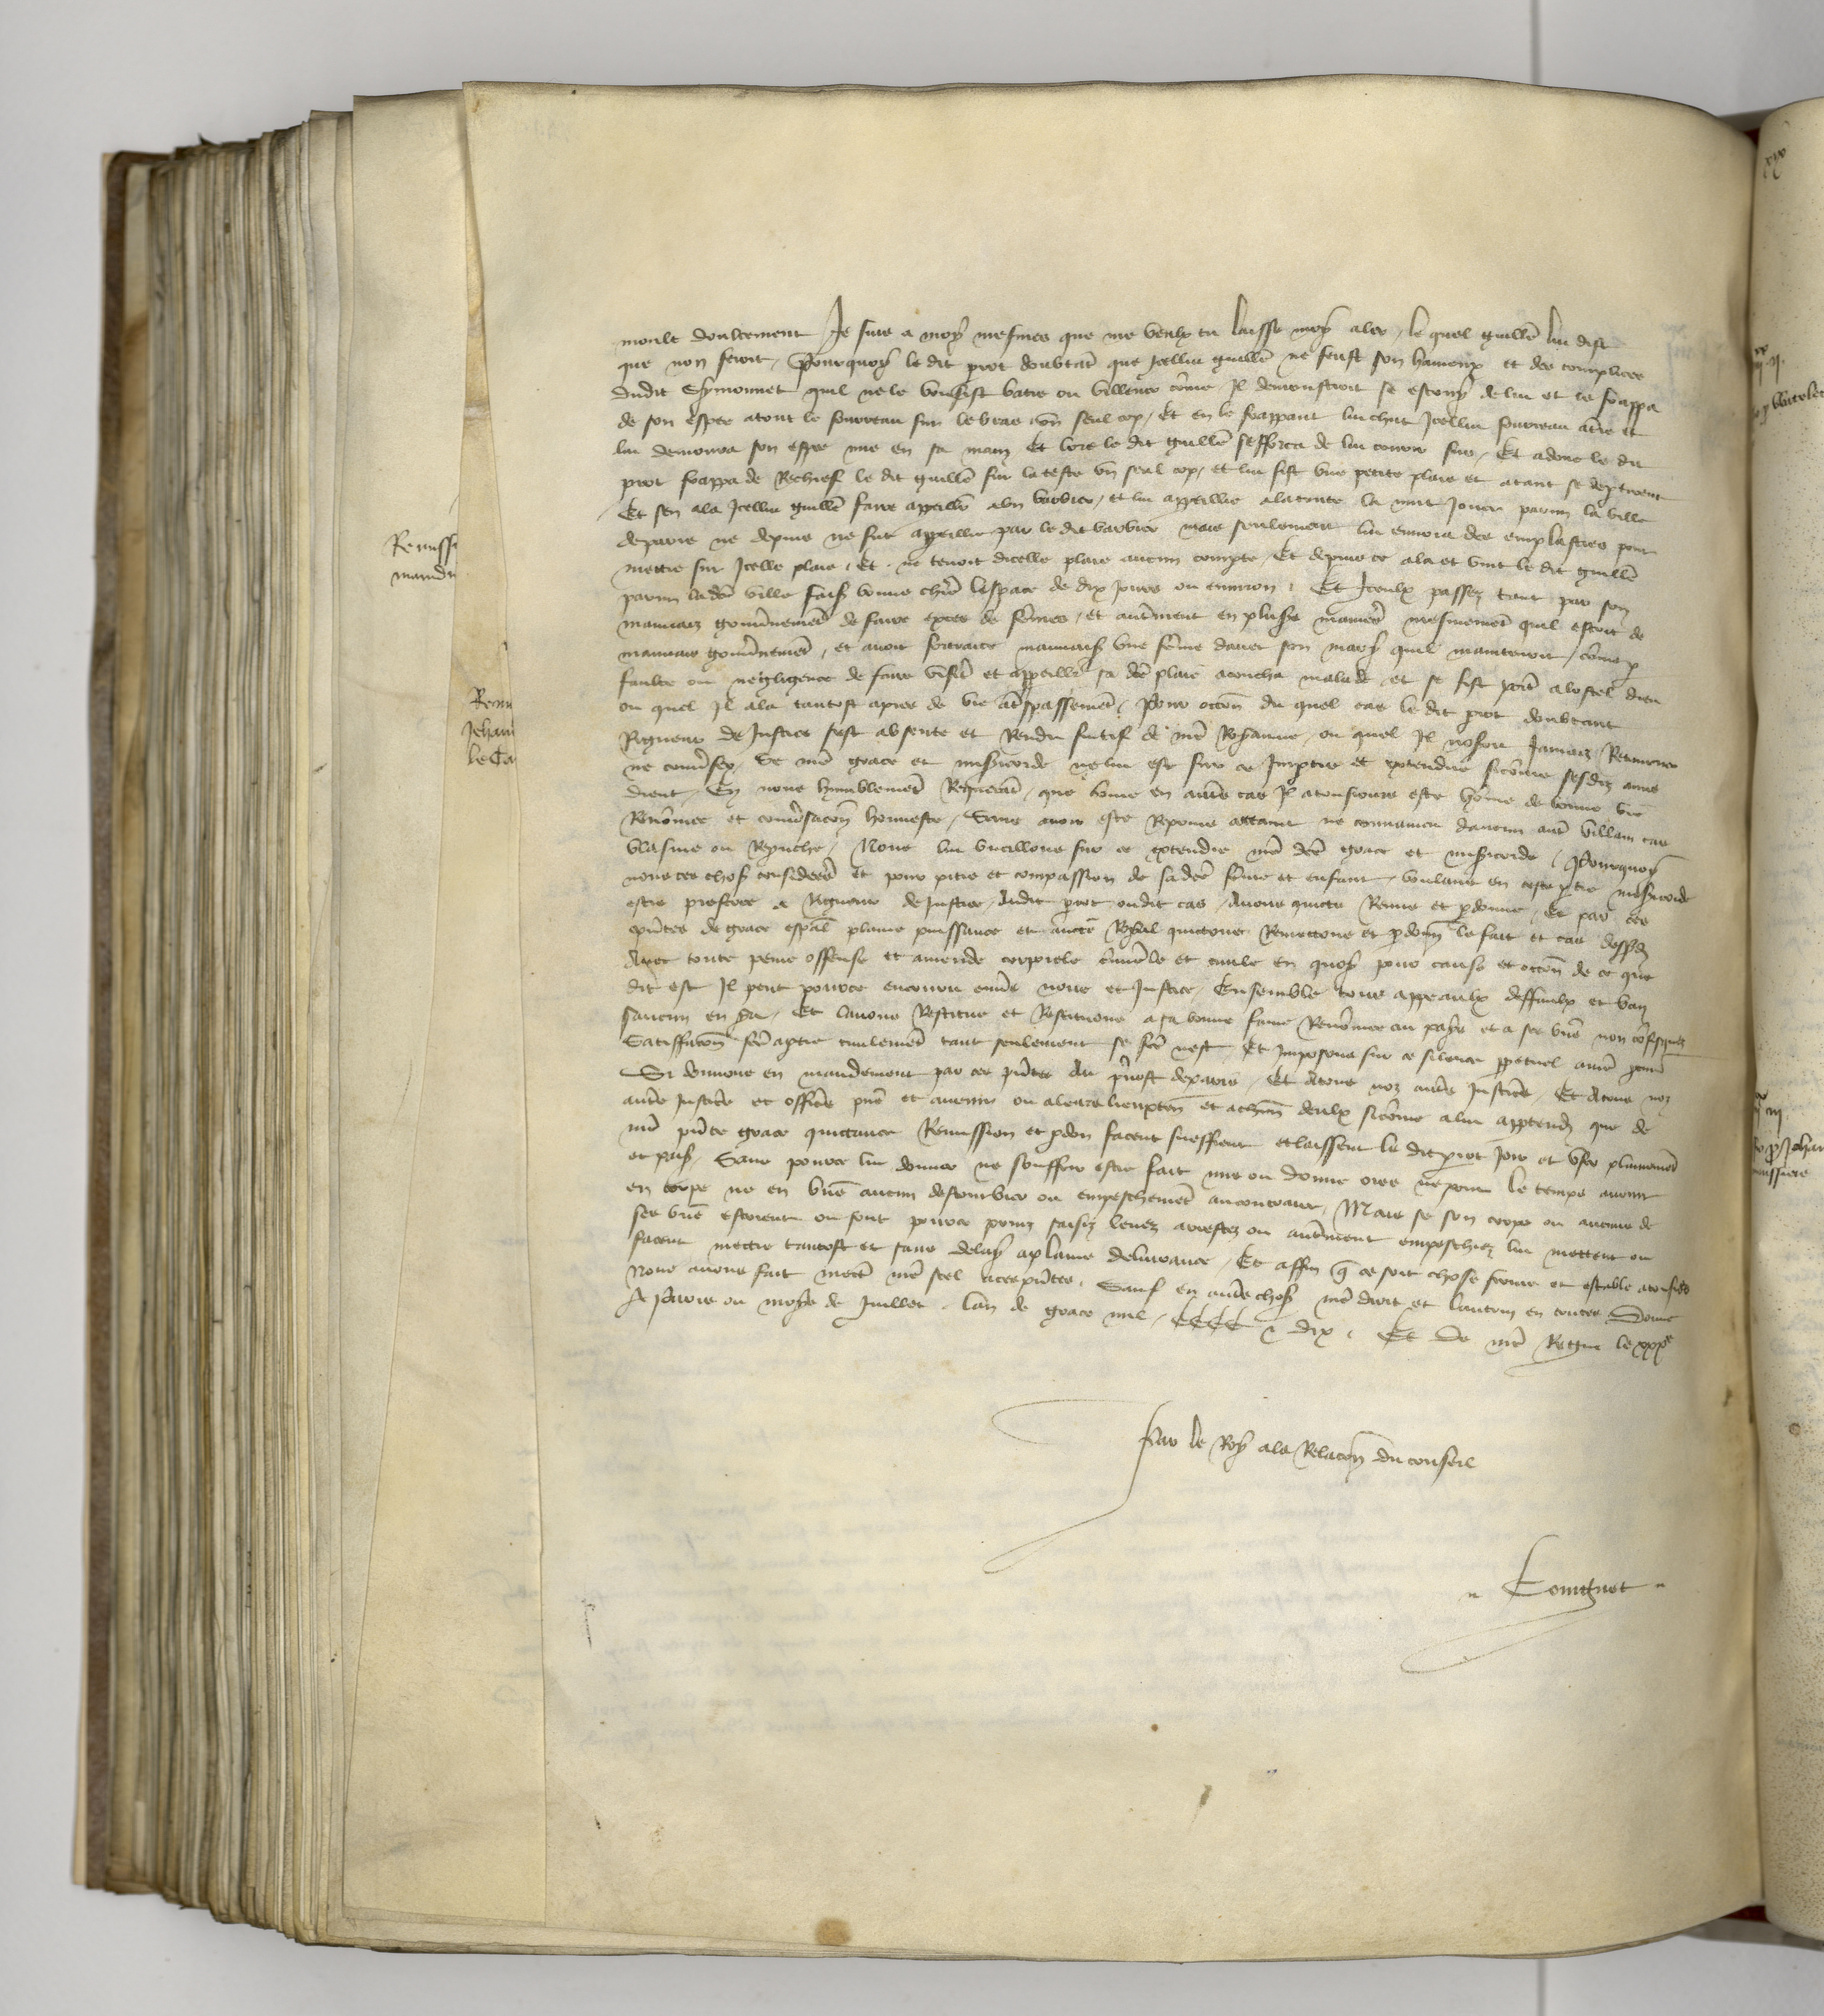 moult doulcement Je suis a moy mesmes que me veulx tu laisse moy aler, le quel guille lui dist
que non feroit, Pourquoy le dit piot doubtat que Icellui guille ne feust son hameneux et des complices
dudit Symonnet quil ne le voulsist batre ou villener come Il demonstroit se escouy de lui et le frappa
de son espee atout le fourreau sur le bras un seul cop, Et en le frappant lui chut Icellui fourreau a tre et
lui demoura son espee nue en sa main Et lors le dit guille sefforca de lui courir sus, Et adonc le dit
piot frappa de Rechief le dit guille sur la teste un seul cop, et lui fist une petite plaie et atant se deptirent
Et sen ala Icellui guille faire appeille a un barbier, et lui appeillie ala toute la nuit Jouer parmi la ville
de paris ne depuis ne fut appeillie par le dit barbier mais seulement lui envoia des emplastres pour
mettre sur Icelle plaie, Et ne tenoit dicelle plaie aucun compte, Et depuis ce ala et vint le dit guille
parmi lad ville fais bonne chere lespace de dix Jours ou environ, Et Iceulx passez tant par son
mauvaiz gouvnement de faire exces de femes, et autment en plus manies mesmement quil estoit de
mauvais gouvnement, et avoit fortraite mauvais une feme davec son mary quil maintenoit, come p
faulte ou negligence de faire visite et appeille sa dce plaie acoucha malade, et se fist porte a lostel dieu
ou quel Il ala tantost apres de vie a tspassement, Pour occon du quel cas le dit piot doubtant
Rigueur de Justice sest absente et Rendu fuitif de nre Royaume, ou quel Il noseroit Jamaiz Retourner
ne convser, Se nre grace et misicorde ne lui est sur ce Impartie et extendue sicome sesdiz amis
dient, En nous humblement Requerat, que come en autres cas Il a tousiours este home de bonne vie
Renomee et convsacon honneste, Sans avoir este Repris attaint ne convaincu daucun aut villain cas
blasme ou Repruche, Nous lui vueillons sur ce extendre nre dce grace et misicorde, Pourquoy
nous ces chos considerees et pour pitie et compassion de sa dce feme et enfant, voulans en ceste ptie misicorde
estre preferee a Rigueur de Justice, Audit piot oudit cas, Avons quicte Remis et pdonne, Et par ces
pntes de grace espal plaine puissance et aucte Royal quictons Remettons et pdonn le fait et cas dess
Avec toute peine offense et amende corporele criminele et civile en quoy pour cause et occon de ce que
dit est Il peut pourroit encouru envs nous et Justice, Ensemble tous appeaulx deffaulx et ban
saucun en ya, Et lavons Restitue et Restituons a sa bonne fame Renomee au pays et a ses biens non cofisquez
Satisfacon fce a ptie civilement tant seulement se fce nest, Et Imposons sur ce silence ppetuel a nre procur
Si donnons en mandement par ces pntes Au pvost de paris, Et Atous noz auts Justices, Et Atous noz
auts Justics et officrs pns et avenir ou a leurs lieuxten et a chun deulx sicome a lui apptendra que de
nre pnte grace quictance Remission et pdon facent sueffrent et laissent le dit piot Joir et user plainement
et paisib, Sans pource lui donner ne souffrir estre fait mis ou donne ores ne pour le temps avenir
en corps ne en biens aucun destourbier ou empeschement au contraire, Mais se son corps ou aucuns de
ses biens estoient ou sont pource prins saisiz levez arrestez ou autment empeschiez lui mettent ou
facent mettre tantost et sans delay a plaine delivrance, Et affin q ce soit chose ferme et estable a tousios
Nous avons fait mecte nre scel a ces pntes, Sauf en auts chos nre droit et lautruy en toutes Donne
A Paris ou moys de Juillet, Lan de grace mil CCCC & dix, Et de nre Regne le xxxe
Par le Roy ala Relacon du conseil
Remissi
Jehan
le